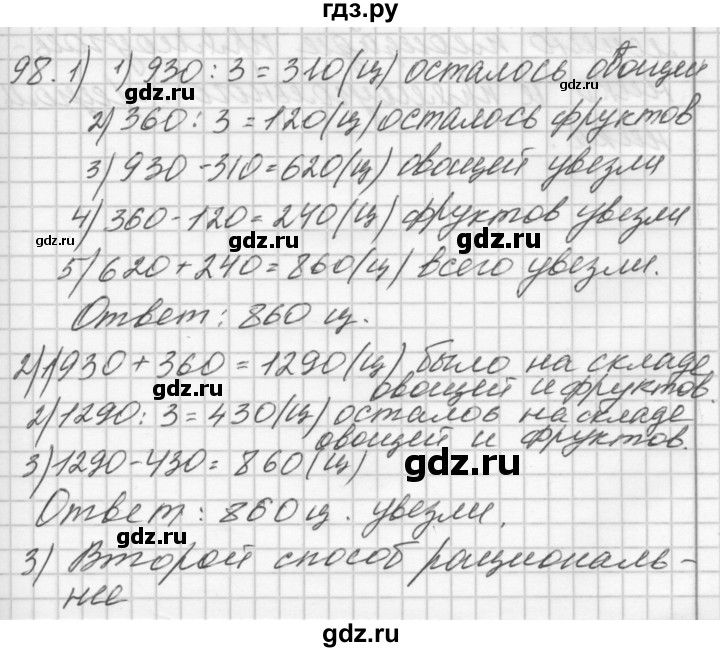 гдз.ру
98. 1) 1) 930 : 3 = 310 (ц) осталось овощей
gdz.ru gdz.ru
2) 360 : 3 = 120 (ц) осталось фруктов
3) 930 - 310 = 620 (ц) овощей увезли
4) 360 - 120 = 240 (ц) фруктов увезли
gdz.ru gdz.ru gdz.ru
5) 620 + 240 = 860 (ц) всего увезли.
Ответ: 860 ц.
2) 1) 930 + 360 = 1290 (ц) было на складе
овощей и фруктов.
gdz.ru gdz.ru
2) 1290 : 3 = 430 (ц) осталось на складе
овощей и фруктов.
3) 1290 - 430 = 860 (ц)
gdz.ru
Ответ: 860 ц. увезли.
gdz.ru gdz.ru
3) Второй способ рациональ-
нее
gdz.ru gdz.ru
gdz.ru